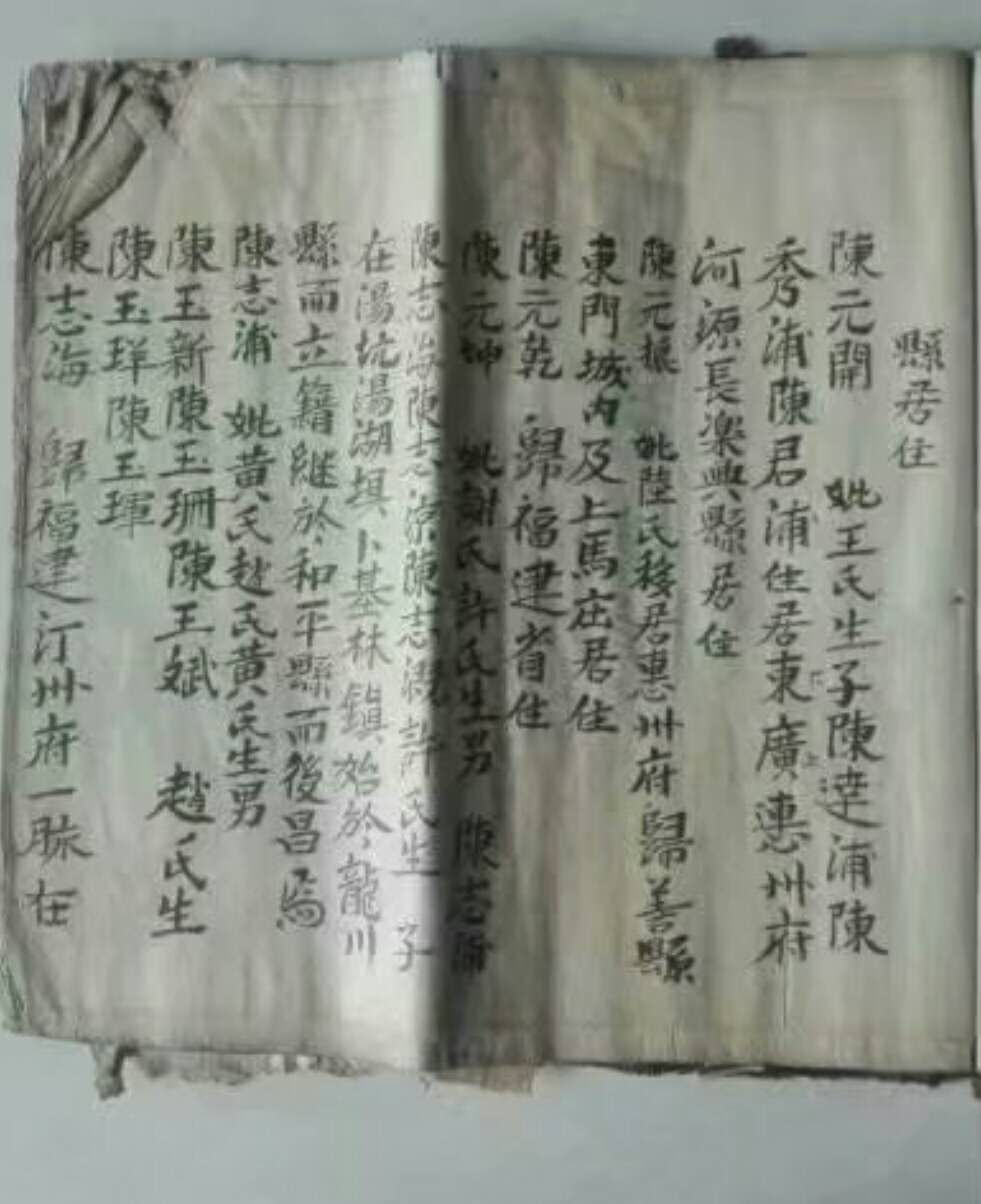 縣居住
陳元開 妣王氏生子陳達浦陳
秀浦陳君浦住居東廣惠州府
河源長楽興縣居住
陳元振 妣陸氏移居惠州府歸善縣
東門城内及上馬庄居住
陳元乾 歸福建省住
陳元坤 妣謝氏許氏生男 陳志浦
陳志海陳志 陳志 許氏生 子
在湯坑湯湖埧卜基林鎮始於龍川
縣而立籍継於和平縣而後昌焉
陳志浦 妣黃氏赵氏黃氏生男
陳玉新陳玉珊陳玉斌 趙氏生
陳玉珜陳玉琿
陳志海 歸福建汀州府一脉在